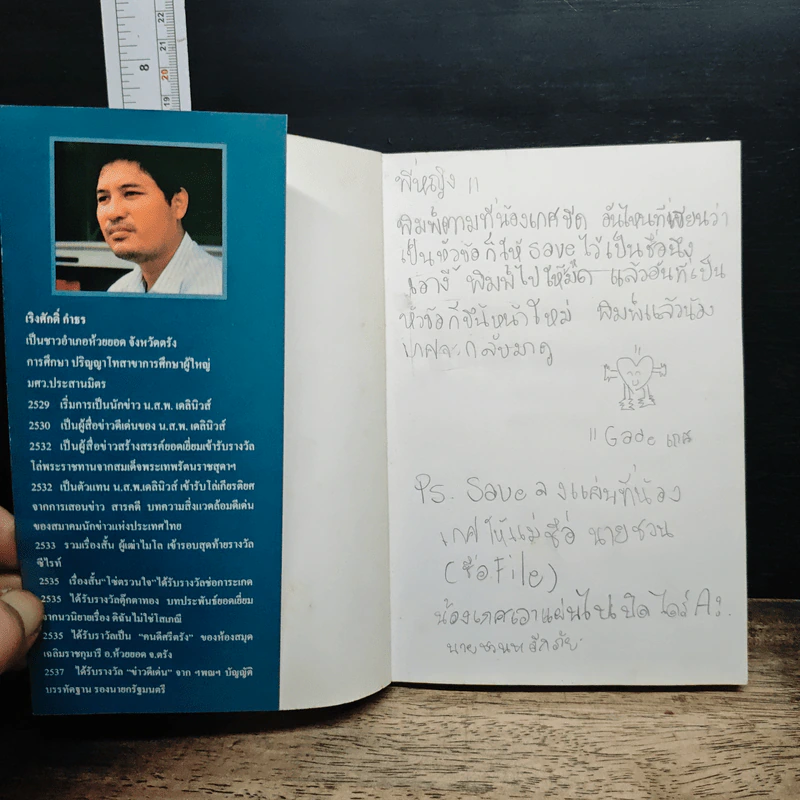 22
21
8
20
19
เริงศักดิ์ กำธร
เป็นชาวอำเภอห้วยยอด จังหวัดตรัง
การศึกษา ปริญญาโทสาขาการศึกษาผู้ใหญ่
มศว.ประสานมิตร
2529 เริ่มการเป็นนักข่าว น.ส.พ. เดลินิวส์
2530 เป็นผู้สื่อข่าวดีเด่นของ น.ส.พ. เดลินิวส์
2532 เป็นผู้สื่อข่าวสร้างสรรค์ยอดเยี่ยมเข้ารับรางวัล
โล่พระราชทานจากสมเด็จพระเทพรัตนราชสุดาฯ
2532 เป็นตัวแทน น.ส.พ.เดลินิวส์ เข้ารับโล่เกียรติยศ
จากการเสนอข่าว สารคดี บทความสิ่งแวดล้อมดีเด่น
ของสมาคมนักข่าวแห่งประเทศไทย
2533 รวมเรื่องสั้น ผู้เฒ่าไมโล เข้ารอบสุดท้ายรางวัล
ซีไรท์
2535 เรื่องสั้น"โซ่ตรวนใจ"ได้รับรางวัลช่อการะเกด
2535 ได้รับรางวัลตุ๊กตาทอง บทประพันธ์ยอดเยี่ยม
จากนวนิยายเรื่อง ดิฉันไม่ใช่โสเภณี
2535 ได้รับรางวัลเป็น "คนดีศรีตรัง" ของห้องสมุด
เฉลิมราชกุมารี อ.ห้วยยอด จ.ตรัง
2537 ได้รับรางวัล "ข่าวดีเด่น" จาก ฯพณฯ บัญญัติ
บรรทัดฐาน รองนายกรัฐมนตรี
พี่หญิง
พิมพ์ตามที่น้องเกศขีด อันไหนที่เขียนว่า
เป็นหัวข้อก็ให้ save ไว้เป็นชื่อนึง
เอางี้ พิมพ์ไปให้มืด แล้วอันที่เป็น
หัวข้อก็ขึ้นหน้าใหม่ พิมพ์แล้วน้อง
เกศจะกลับมาดู
Gade เกศ
Ps. Save ลงแผ่นที่น้อง
เกศให้แม่ชื่อ นายชวน
(ชื่อ File)
น้องเกศเอาแผ่นไปเปิดไดร์ A: